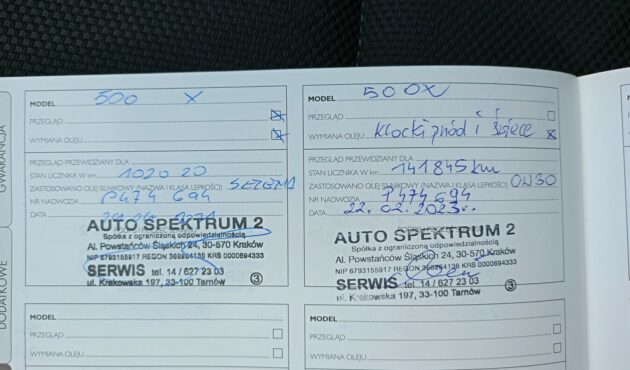 GWARANCJA
DODATKOWE
MODEL 500 X
PRZEGLĄD
WYMIANA OLEJU
PRZEGLĄD PRZEWIDZIANY DLA
STAN LICZNIKA W km 102020
ZASTOSOWANO OLEJ SILNIKOWY (NAZWA I KLASA LEPKOŚCI)
NR NADWOZIA P474694
DATA
AUTO SPEKTRUM 2
Spółka z ograniczoną odpowiedzialnością
Al. Powstańców Śląskich 24, 30-570 Kraków
NIP 6793155917 REGON 368264136 KRS 0000694333
SERWIS tel. 14 / 627 23 03
ul. Krakowska 197, 33-100 Tarnów
3
MODEL
PRZEGLĄD
WYMIANA OLEJU
MODEL 500X
PRZEGLĄD
WYMIANA OLEJU Klocki przód i
PRZEGLĄD PRZEWIDZIANY DLA
STAN LICZNIKA W km 141845 km
ZASTOSOWANO OLEJ SILNIKOWY (NAZWA I KLASA LEPKOŚCI) 0W30
NR NADWOZIA P474694
DATA 22.02.2023r.
AUTO SPEKTRUM 2
Spółka z ograniczoną odpowiedzialnością
Al. Powstańców Śląskich 24, 30-570 Kraków
NIP 6793155917 REGON 368264136 KRS 0000694333
SERWIS tel. 14 / 627 23 03
ul. Krakowska 197, 33-100 Tarnów
3
MODEL
PRZEGLĄD
WYMIANA OLEJU